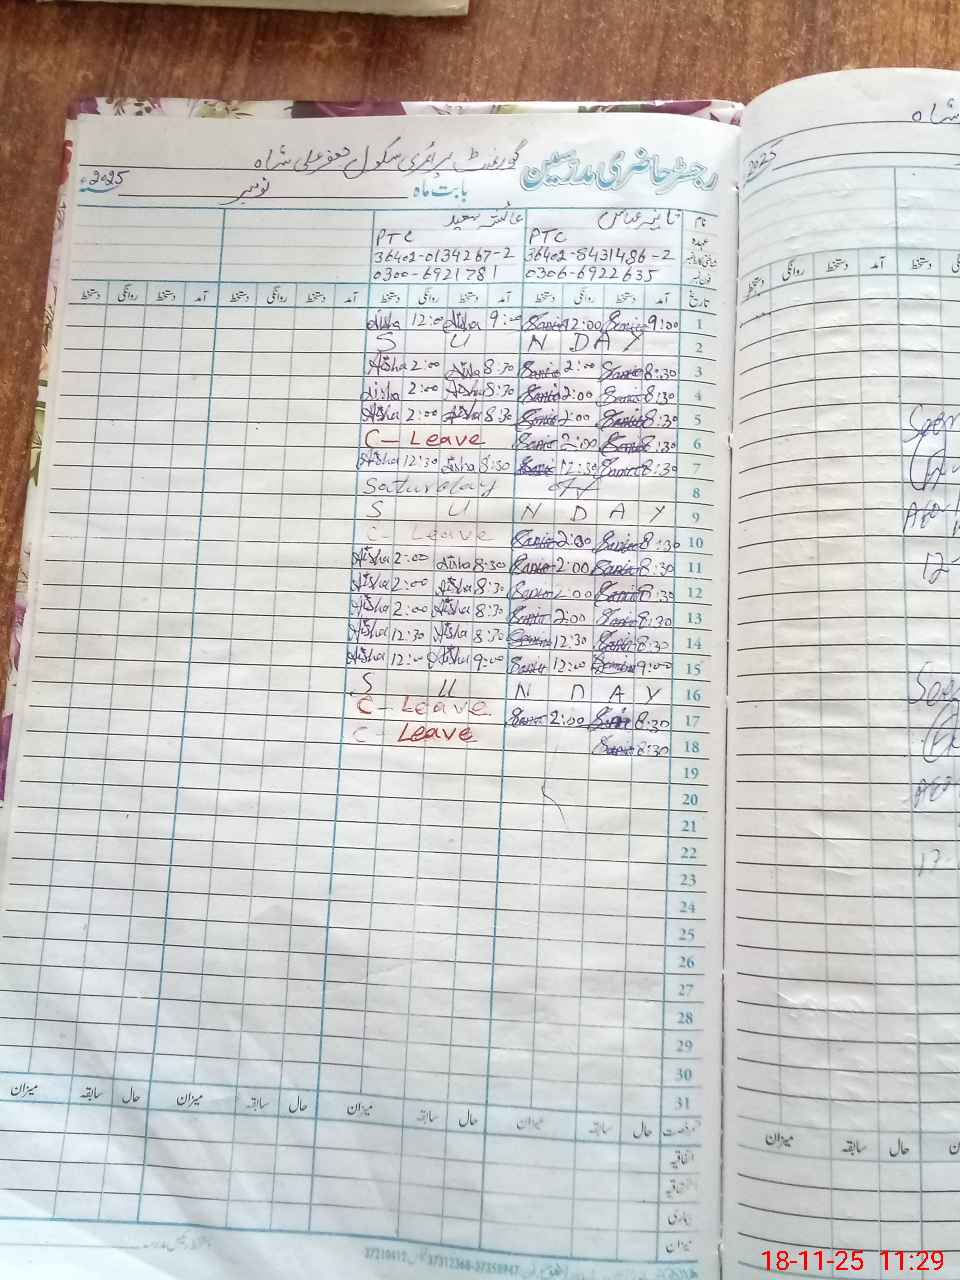 رجسٹر حاضری مدرسین گورنمنٹ پرائمری سکول جعفر علی شاہ
بابت ماہ نومبر 2025
نام تانیہ عباس عائشہ سعید
عہدہ PTC PTC
شناختی کارڈ نمبر 36402-8431486-2 36402-0134267-2
فون نمبر 0306-6922635 0300-6921781
تاریخ آمد دستخط روانگی دستخط آمد دستخط روانگی دستخط آمد دستخط روانگی دستخط آمد دستخط روانگی دستخط
1 9:00 Sania 12:00 Sania 9:00 Aisha 12:00 Aisha
2 S U N D A Y
3 8:30 Sania 2:00 Sania 8:30 Aisha 2:00 Aisha
4 8:30 Sania 2:00 Sania 8:30 Aisha 2:00 Aisha
5 8:30 Sania 2:00 Sania 8:30 Aisha 2:00 Aisha
6 8:30 Sania 2:00 Sania C-Leave
7 8:30 Sania 12:30 Sania 8:30 Aisha 12:30 Aisha
8 Saturday
9 S U N D A Y
10 8:30 Sania 2:00 Sania C-Leave
11 8:30 Sania 2:00 Sania 8:30 Aisha 2:00 Aisha
12 8:30 Sania 2:00 Sania 8:30 Aisha 2:00 Aisha
13 8:30 Sania 2:00 Sania 8:30 Aisha 2:00 Aisha
14 8:30 Sania 12:30 Sania 8:30 Aisha 12:30 Aisha
15 9:00 Sania 12:00 Sania 9:00 Aisha 12:00 Aisha
16 S U N D A Y
17 8:30 Sania 2:00 Sania C-Leave
18 8:30 Sania C-Leave
19
20
21
22
23
24
25
26
27
28
29
30
31
رخصت حال سابقہ میزان حال سابقہ میزان حال سابقہ میزان حال سابقہ میزان
اتفاقیہ
بیماری
میزان
37312368-37358947
شاہ
2025
دستخط روانگی دستخط آمد دستخط
میزان سابقہ حال
18-11-25 11:29